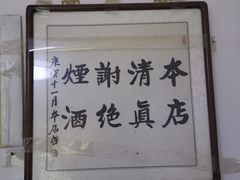 本店
清真
謝絕
煙酒
庚寅十一月本店啓